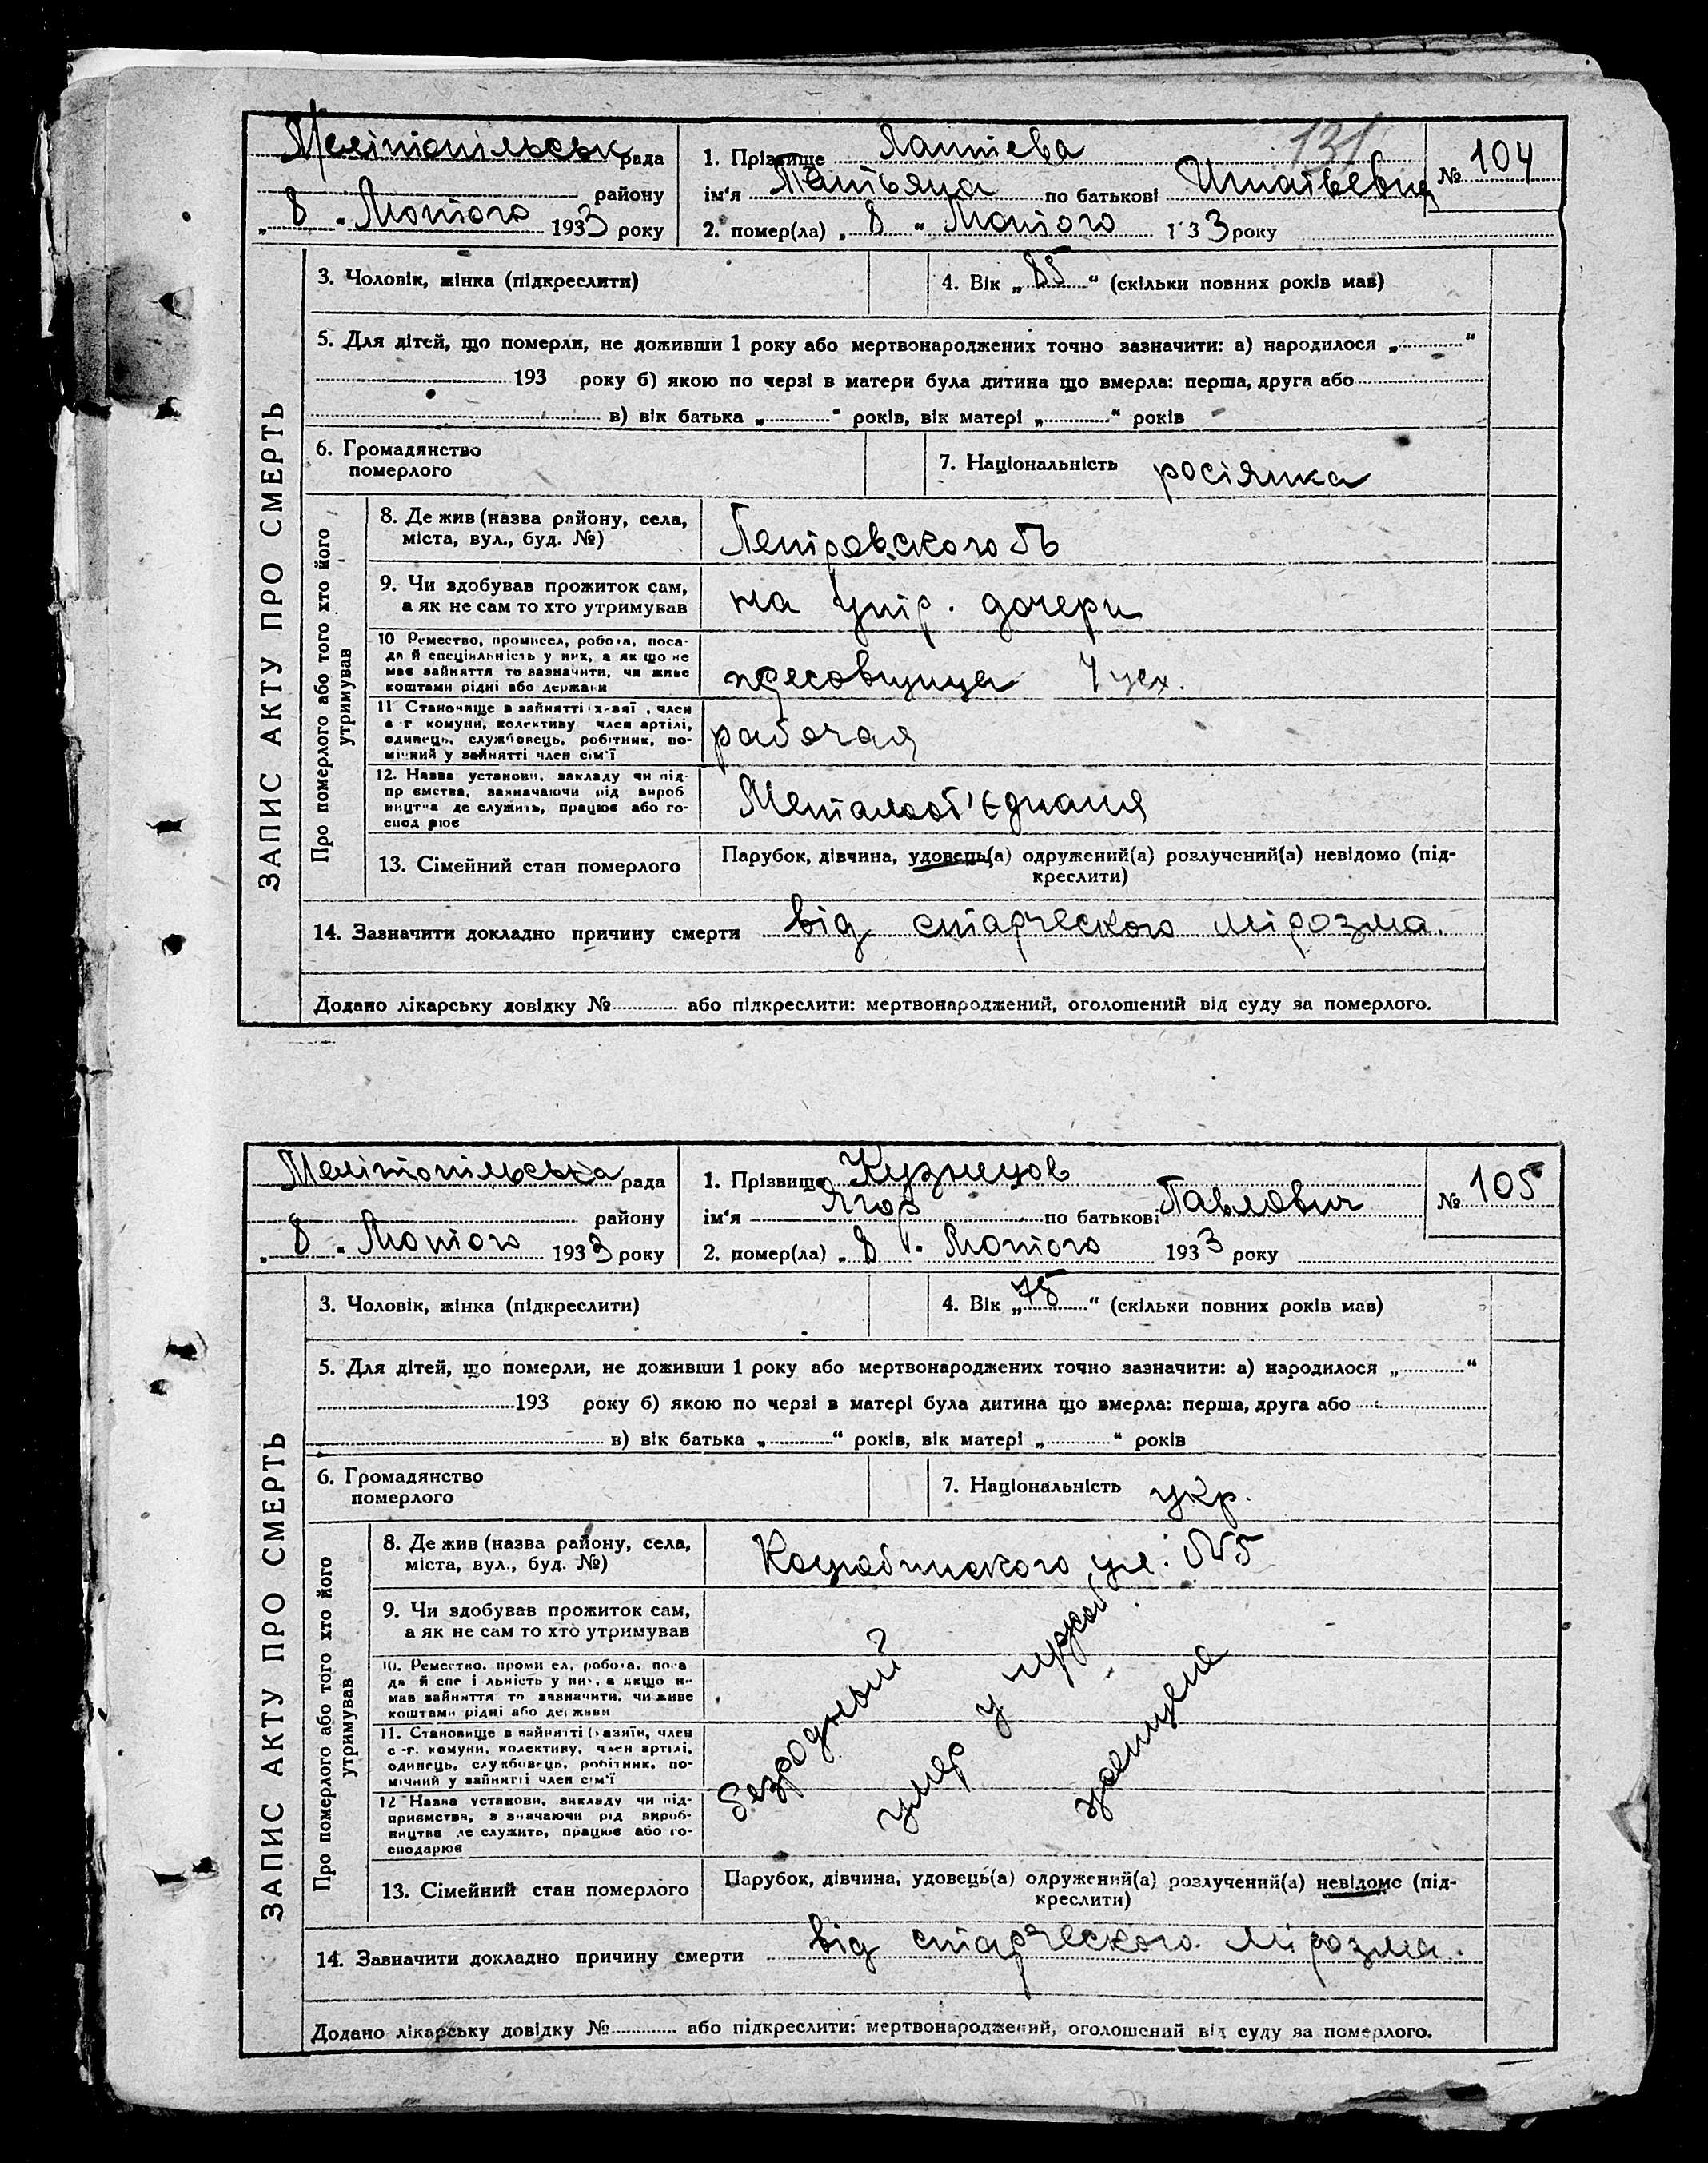 131
Мелітопільськ рада
району
„ 8 " Лютого 1933 року
1. Прізвище Лаптєва
ім'я Татьяна по батькові Игнатьевна
2. помер(ла) „ 8 " Лютого 1 33 року
№ 104
ЗАПИС АКТУ ПРО СМЕРТЬ
3. Чоловік, жінка (підкреслити)
4. Вік „ 85 " (скільки повних років мав)
5. Для дітей, що померли, не доживши 1 року або мертвонароджених точно зазначити: а) народилося „ "
193 року б) якою по черзі в матери була дитина що вмерла: перша, друга або
в) вік батька „ " років, вік матері „ " років
6. Громадянство
померлого
7. Національність росіянка
Про померлого або того хто його
утримував
8. Де жив (назва району, села,
міста, вул., буд. №)
Петровского
9. Чи здобував прожиток сам,
а як не сам то хто утримував
на утр. дочери
10 Ремество, промисел, робота, поса-
да й спеціяльність у них, а як що не
має зайняття то зазначити, чи живе
коштами рідні або держави
11 Становище в зайнятті х-заї , член
с-г комуни, колективу член артілі,
одинець, службовець, робітник, по-
мічний у зайнятті член сім'ї
рабочая
12. Назва установи, закладу чи під-
пр ємства, зазначаючи рід вироб
ництва де служить, працює або го-
спод рює
Металооб'єднаня
13. Сімейний стан померлого
Парубок, дівчина, удовець(а) одружений(а) розлучений(а) невідомо (під-
креслити)
14. Зазначити докладно причину смерти від старческого мірозма.
Додано лікарську довідку № або підкреслити: мертвонароджений, оголошений від суду за померлого.
Мелітопільська рада
району
„ 8 " Лютого 1933 року
1. Прізвище Кузнецов
ім'я Ягор по батькові Павлович
2. помер(ла) „ 8 " Лютого 1933 року
№ 105
ЗАПИС АКТУ ПРО СМЕРТЬ
3. Чоловік, жінка (підкреслити)
4. Вік „ 75 " (скільки повних років мав)
5. Для дітей, що померли, не доживши 1 року або мертвонароджених точно зазначити: а) народилося „ "
193 року б) якою по черзі в матери була дитина що вмерла: перша, друга або
в) вік батька „ " років, вік матері „ " років
6. Громадянство
померлого
7. Національність укр.
Про померлого або того хто його
утримував
8. Де жив (назва району, села,
міста, вул., буд. №)
ул. №5
9. Чи здобував прожиток сам,
а як не сам то хто утримував
10. Ремество, проми ел, робота, поса
да й спе і льність у них, а якщо н-
має зайняття то зазначити, чи живе
коштами рідні або держави
11. Становище в зайнятті (хазяїн, член
с-г. комуни, колективу, член артілі,
одинець, службовець, робітник, по-
мічний у зайнятті член сім'ї
12 Назва установи, закладу чи під-
приємства, зазначаючи рід вироб-
ництва де служить, працює або го-
сподарює
безродный
умер у чужой
13. Сімейний стан померлого
Парубок, дівчина, удовець(а) одружений(а) розлучений(а) невідомо (під-
креслити)
14. Зазначити докладно причину смерти від старческого мірозма.
Додано лікарську довідку № або підкреслити: мертвонароджений, оголошений від суду за померлого.